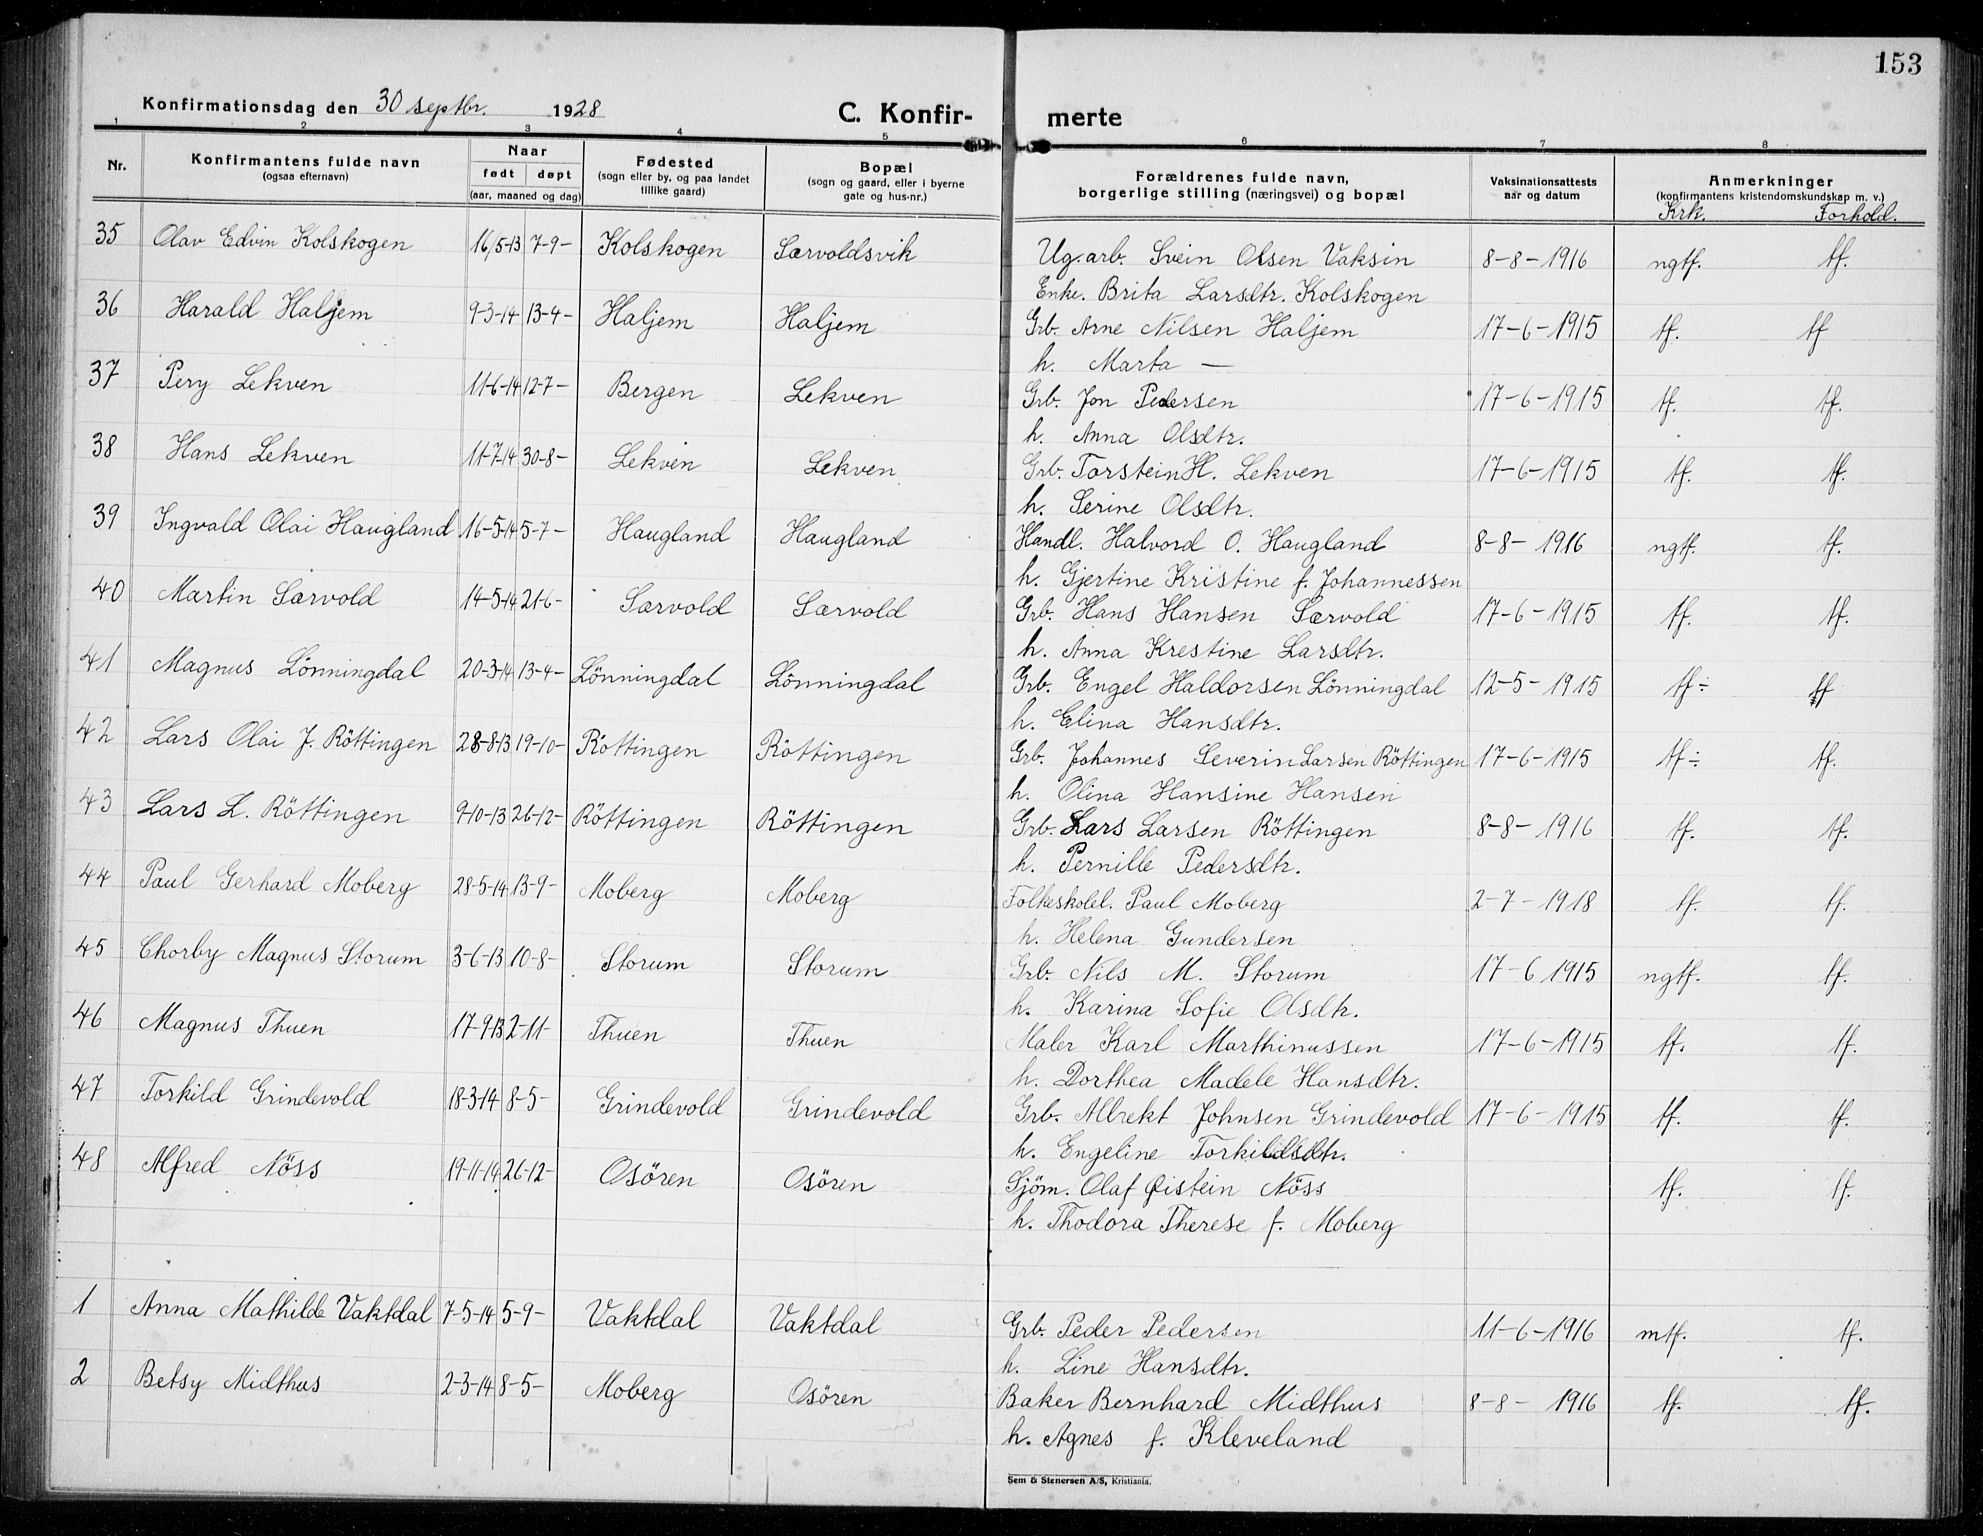 153
Konfirmationsdag den 30 septbr. 1928 C. Konfir- merte
1 2 3 4 5 6 7 8
Nr. Konfirmantens fulde navn (ogsaa efternavn) Naar født døpt (aar, maaned og dag) Fødested (sogn eller by, og paa landet tillike gaard) Bopæl (sogn og gaard, eller i byerne gate og hus-nr.) Forældrenes fulde navn, borgerlige stilling (næringsvei) og bopæl Vaksinationsattests aar og datum Anmerkninger (konfirmantens kristendomskundskap m. v.) Krk. Forhold.
35 Olav Edvin Kolskogen 16/5-13 7-9- Kolskogen Særvoldsvik Ug. arb. Svein Olsen Vaksin 8-8-1916 ngtf. tf.
Enke. Brita Larsdtr. Kolskogen
36 Harald Haljem 9-3-14 13-4- Haljem Haljem Grb. Arne Nilsen Haljem 17-6-1915 tf. tf
h. Marta —
37 Pery Lekven 11-6-14 12-7- Bergen Lekven Grb. Jon Pedersen 17-6-1915 tf. tf.
h. Anna Olsdtr.
38 Hans Lekven 11-7-14 30-8- Lekven Lekven Grb. Torstein H. Lekven 17-6-1915 tf. tf.
h. Serine Olsdtr.
39 Ingvald Olai Haugland 16-5-14 5-7- Haugland Haugland Handl. Halvord O. Haugland 8-8-1916 ngtf. tf.
h. Gjertine Kristine f. Johannessen
40 Martin Særvold 14-5-14 21-6- Særvold Særvold Grb. Hans Hansen Særvold 17-6-1915 tf. tf.
h. Anna Krestine Larsdtr.
41 Magnus Lönningdal 20-3-14 13-4- Lönningdal Lönningdal Grb. Engel Haldorsen Lönningdal 12-5-1915 tf÷ tf
h. Elina Hansdtr.
42 Lars Olai J. Röttingen 28-8-13 19-10- Röttingen Röttingen Grb. Johannes Severin Larsen Röttingen 17-6-1915 tf÷ tf.
h. Olina Hansine Hansen
43 Lars L. Röttingen 9-10-13 26-12- Röttingen Röttingen Grb. Lars Larsen Röttingen 8-8-1916 tf. tf.
h. Pernille Pedersdtr.
44 Paul Gerhard Moberg 28-5-14 13-9- Moberg Moberg Folkeskolel. Paul Moberg 2-7-1918 tf. tf.
h. Helena Gundersen
45 Chorby Magnus Storum 3-6-13 10-8- Storum Storum Grb. Nils M. Storum 17-6 1915 ngtf. tf.
h. Karina Sofie Olsdtr.
46 Magnus Thuen 17-9-13 2-11- Thuen Thuen Maler Karl Marthinussen 17-6-1915 tf. tf.
h. Dorthea Madele Hansdtr.
47 Torkild Grindevold 18-3-14 8-5- Grindevold Grindevold Grb. Albrekt Johnsen Grindevold 17-6-1915 tf. tf.
h. Engeline Torkildsdtr.
48 Alfred Nöss 19-11-14 26-12- Osören Osören Sjöm. Olaf Øistein Nöss tf. tf.
h. Thodora Therese f. Moberg
1 Anna Mathilde Vaktdal 7-5-14 5-9- Vaktdal Vaktdal Grb. Peder Pedersen 11-6-1916 mtf. tf.
h. Line Hansdtr.
2 Betsy Midthus 2-3-14 8-5- Moberg Osören Baker Bernhard Midthus 8-8-1916 tf. tf.
h. Agnes f. Kleveland
Sem & Stenersen A/S, Kristiania.